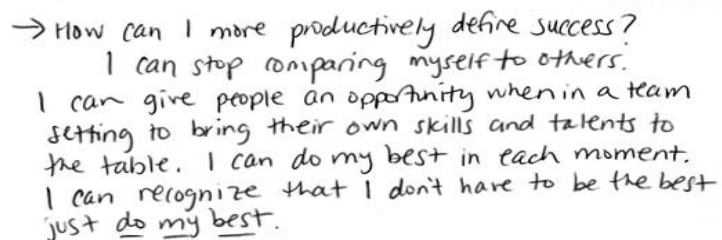 → How can I more productively define success?
I can stop comparing myself to others.
I can give people an opportunity when in a team
setting to bring their own skills and talents to
the table. I can do my best in each moment.
I can recognize that I don't have to be the best
just do my best.